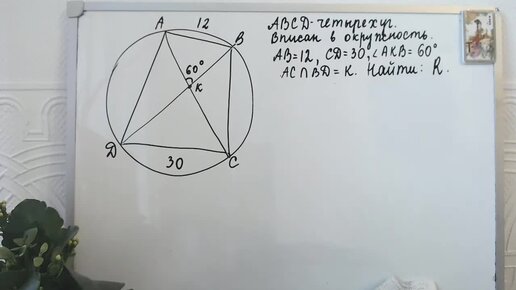 ABCD-четырехуг.
Вписан в окружность.
AB=12, CD=30, ∠AKB=60°
AC∩BD=K. Найти: R.
A
12
B
60°
K
D
30
C